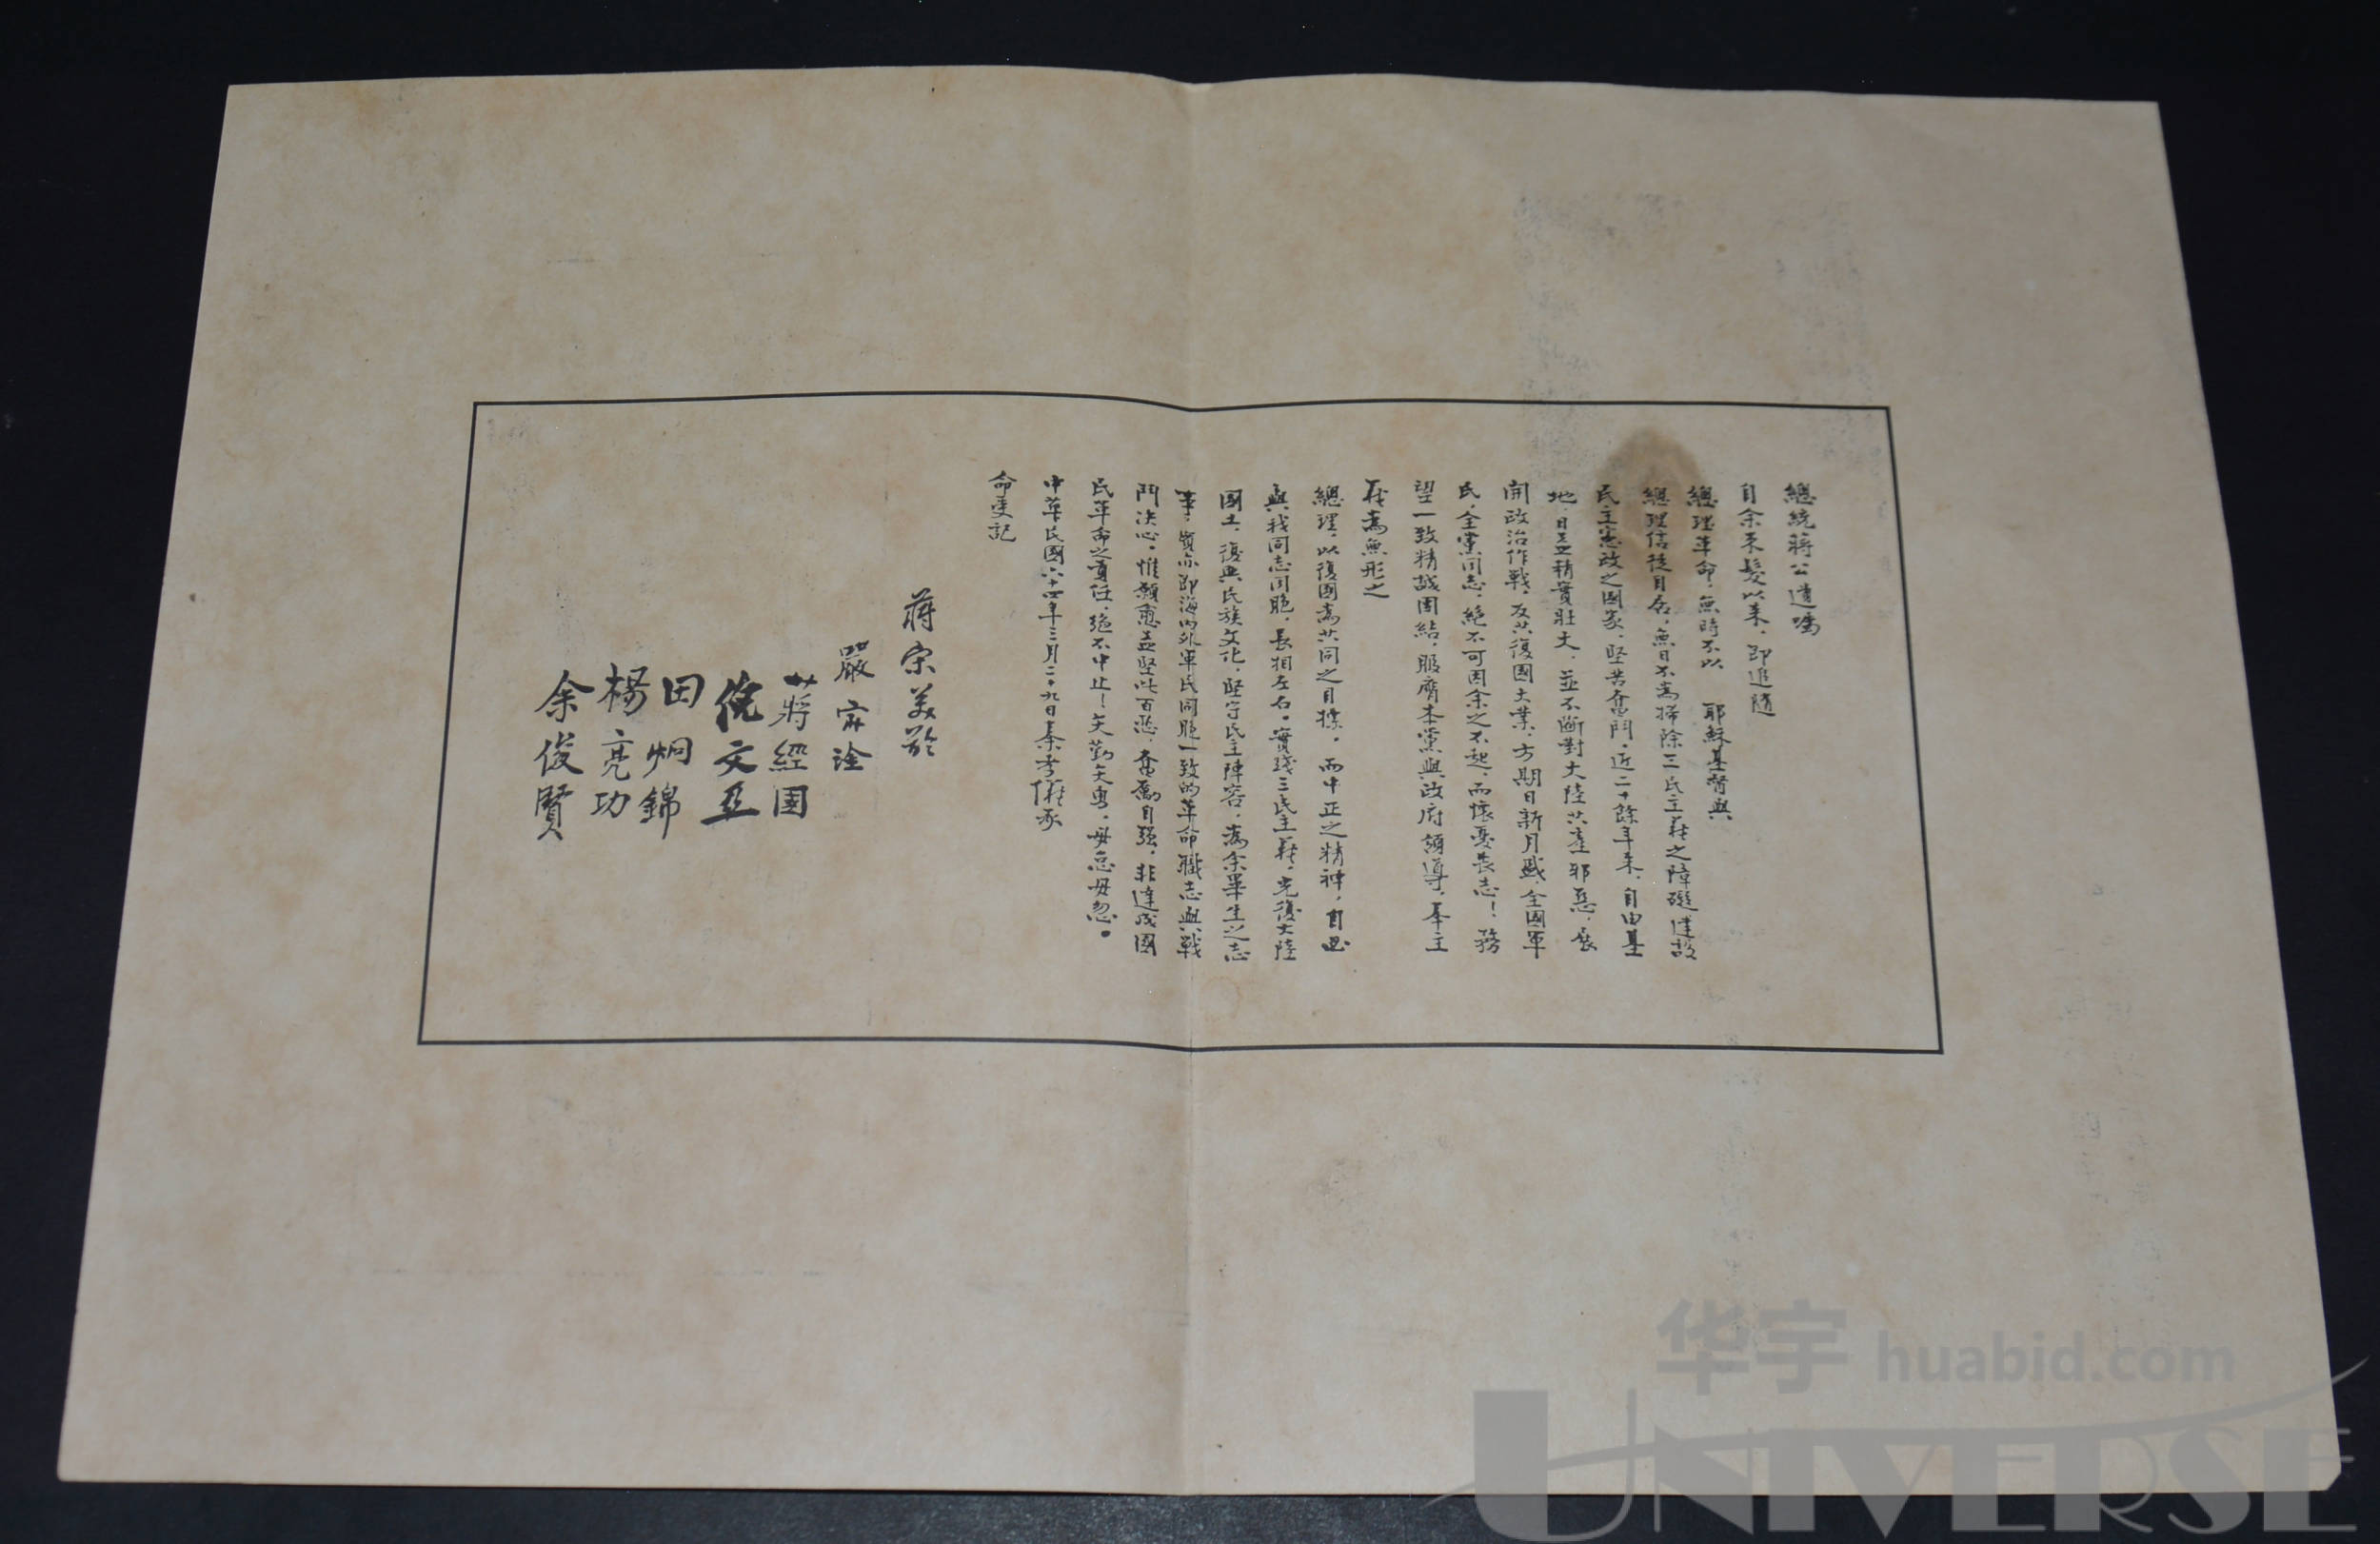 總統蔣公遺囑
自余束髮以來，即追隨
總理革命，無時不以 耶穌基督與
總理信徒自居，無日不為掃除三民主義之障礙建設
民主憲政之國家，堅苦奮鬥，近二十餘年來，自由基
地，日益精實壯大，並不斷對大陸共產邪惡，展
開政治作戰，反共復國大業，方期日新月盛，全國軍
民，全黨同志，絕不可因余之不起，而懷憂喪志！務
望一致精誠團結，服膺本黨與政府領導，奉主
義為無形之
總理，以復國為共同之目標，而中正之精神，自必
與我同志同胞，長相左右。實踐三民主義，光復大陸
國土，復興民族文化，堅守民主陣容，為余畢生之志
事，實亦即海內外軍民同胞一致的革命職志與戰
鬥決心。惟願愈益堅此百忍，奮勵自強，非達成國
民革命之責任，絕不中止！矢勤矢勇，毋怠毋忽。
中華民國六十四年三月二十九日秦孝儀承
命受記
蔣宋美齡
嚴家淦
蔣經國
倪文亞
田炯錦
楊亮功
余俊賢
华宇 huabid.com
UNIVERSE